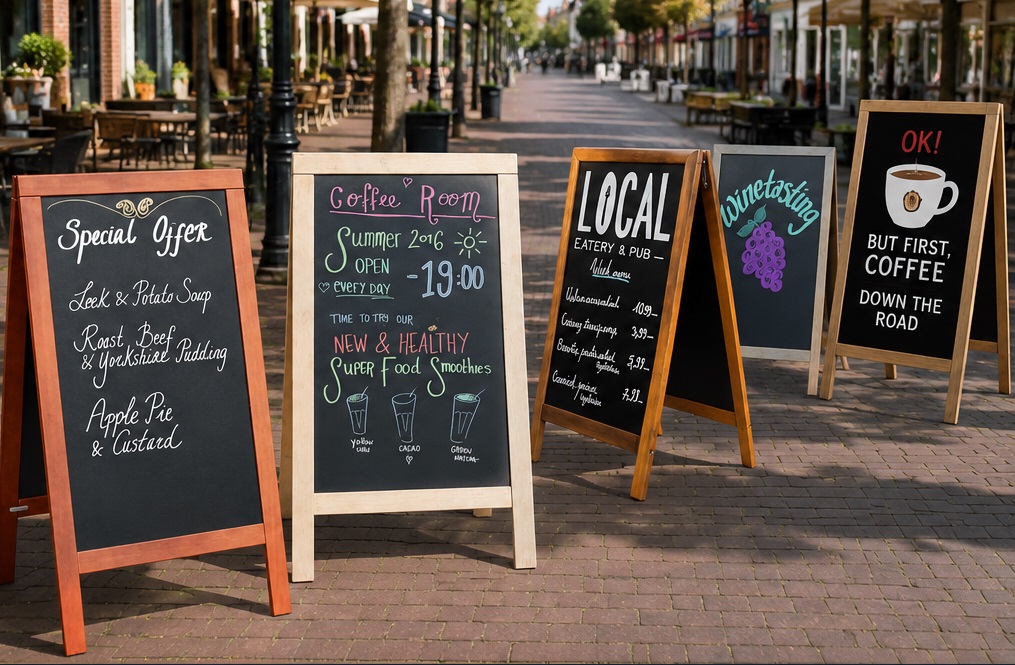 Special Offer
Leek & Potato Soup
Roast Beef
& Yorkshire Pudding
Apple Pie
& Custard
Coffee Room
Summer 2016
OPEN
EVERY DAY
-19:00
TIME TO TRY OUR
NEW & HEALTHY
SUPER FOOD Smoothies
CACAO
LOCAL
EATERY & PUB
3,99.-
5,99.-
7,99.-
winetasting
OK!
BUT FIRST,
COFFEE
DOWN THE
ROAD